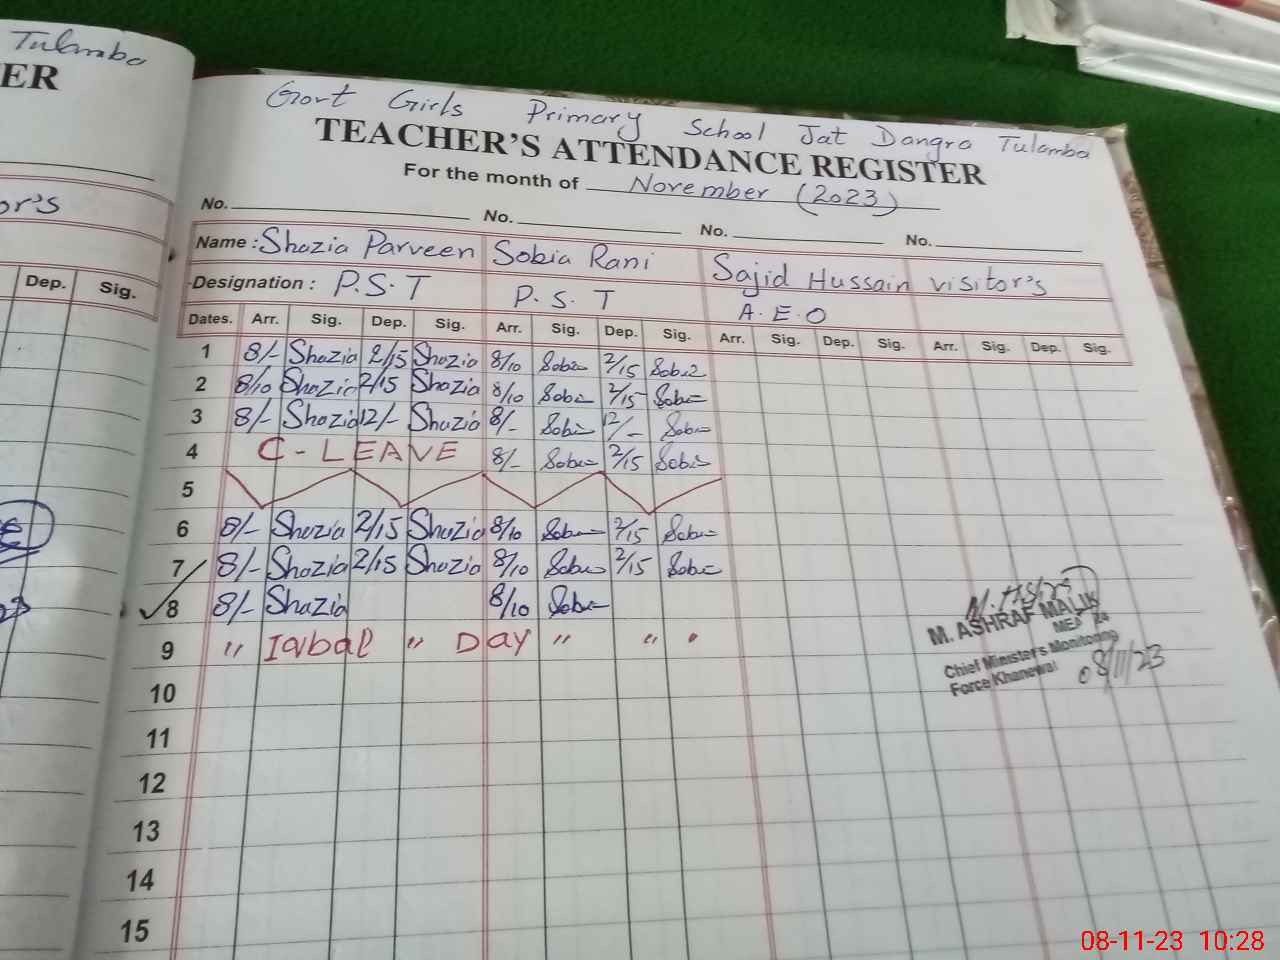 Tulamba
ER
or's
Dep. Sig.
Govt Girls Primary School Jat Dangra Tulamba
TEACHER'S ATTENDANCE REGISTER
For the month of November (2023)
No. No. No. No.
Name : Shazia Parveen Sobia Rani Sajid Hussain visitor's
Designation : P.S.T P.S.T A.E.O
Dates. Arr. Sig. Dep. Sig. Arr. Sig. Dep. Sig. Arr. Sig. Dep. Sig. Arr. Sig. Dep. Sig.
1 8/- Shazia 2/15 Shazia 8/10 Sobia 2/15 Sobia
2 8/10 Shazia 2/15 Shazia 8/10 Sobia 2/15 Sobia
3 8/- Shazia 12/- Shazia 8/- Sobia 12/- Sobia
4 C - LEAVE 8/- Sobia 2/15 Sobia
5
6 8/- Shazia 2/15 Shazia 8/10 Sobia 2/15 Sobia
7 8/- Shazia 2/15 Shazia 8/10 Sobia 2/15 Sobia
8 8/- Shazia 8/10 Sobia
9 " Iqbal " Day " " "
10
11
12
13
14
15
M. ASHRAF MALIK
MEA 24
Chief Minister's Monitoring
Force Khanewal
08/11/23
08-11-23 10:28